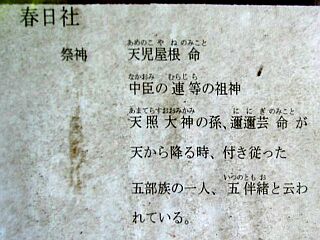 春日社
祭神 天児屋根 命
あめのこ や ね のみこと
中臣の 連 等の祖神
なかおみ むらじ ら
天 照 大 神の孫、邇邇芸 命 が
あまてらすおおみかみ に に ぎ のみこと
天から降る時、付き従った
五部族の一人、五 伴緒 と云わ
いつのとも お
れている。